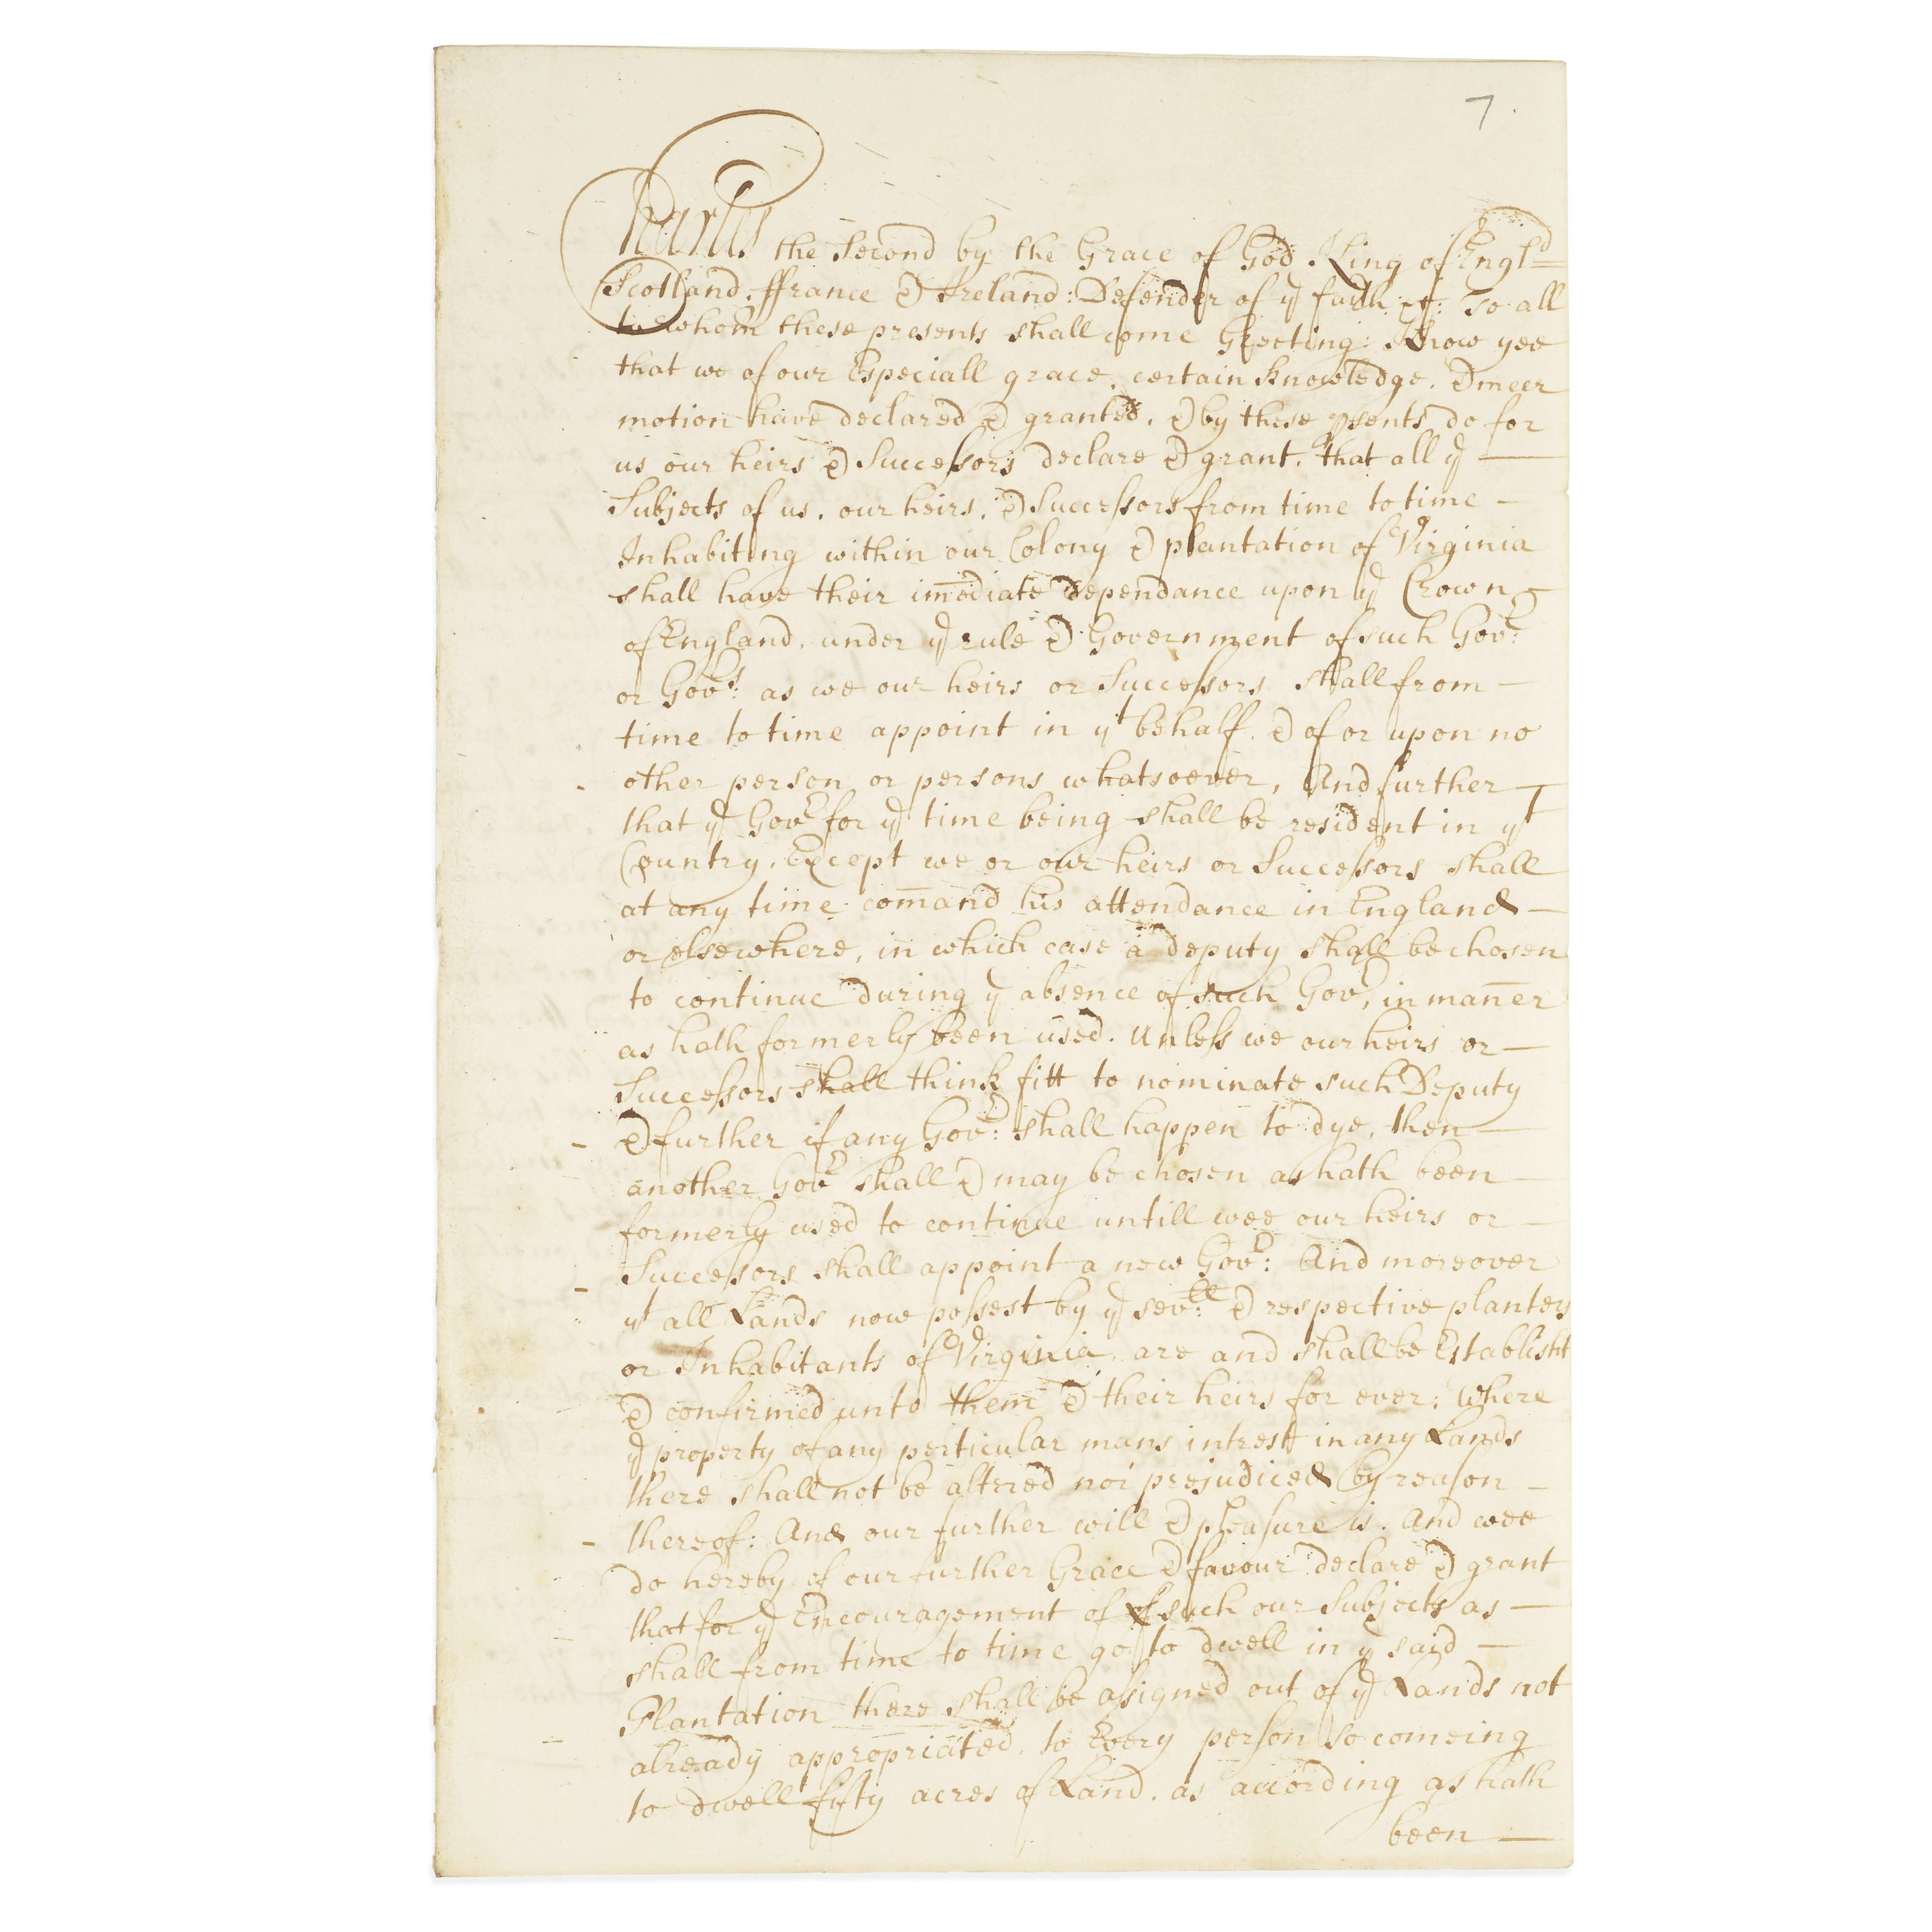 7.
Charles the Second by the Grace of God King of Engld
Scotland, ffrance & Ireland: Defender of ye faith &c: To all
to whom these presents shall come Greeting: Know yee
that we of our Especiall grace, certain knowledge, & meer
motion have declared & granted, & by these psents do for
us our heirs & Successors declare & grant, that all ye
Subjects of us, our heirs, & Successors from time to time -
Inhabiting within our Colony & plantation of Virginia
shall have their imediate dependance upon ye Crown
of England, under ye rule & Government of such Govr:
or Govrs: as we our heirs or Successors shall from -
time to time appoint in yt behalf, & of or upon no
other person or persons whatsoever, And further
that ye Govr for ye time being shall be resident in yt
Country, Except we or our heirs or Successors shall
at any time comand his attendance in England -
or elsewhere, in which case a deputy shall be chosen
to continue during ye absence of such Govr, in maner
as hath formerly been used. Unless we our heirs or -
Successors shall think fitt to nominate such Deputy
& further if any Govr: shall happen to dye, then
another Govr shall & may be chosen as hath been
formerly used to continue untill wee our heirs or -
Successors shall appoint a new Govr: And moreover
yt all Lands now possest by ye sevll: & respective planters
or Inhabitants of Virginia, are and shall be Establisht
& confirmed unto them & their heirs for ever: Where
ye property of any perticular mans intrest in any Lands
there shall not be altred nor prejudiced by reason -
thereof: And our further will & pleasure is, And wee
do hereby of our further Grace & favour declare & grant
that for ye Encouragement of of such our Subjects as -
shall from time to time go to dwell in ye said -
Plantation there shall be assigned out of ye Lands not
already appropriated, to Every person so comeing
to dwell fifty acres of Land, as according as hath
been -